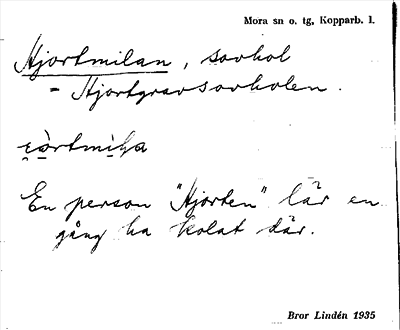 Mora sn o. tg, Kopparb. l.
Hjortmilan, sovhol
= Hjortgravsovholen.
En person "Hjorten" lär en
gång ha kolat där.
Bror Lindén 1935